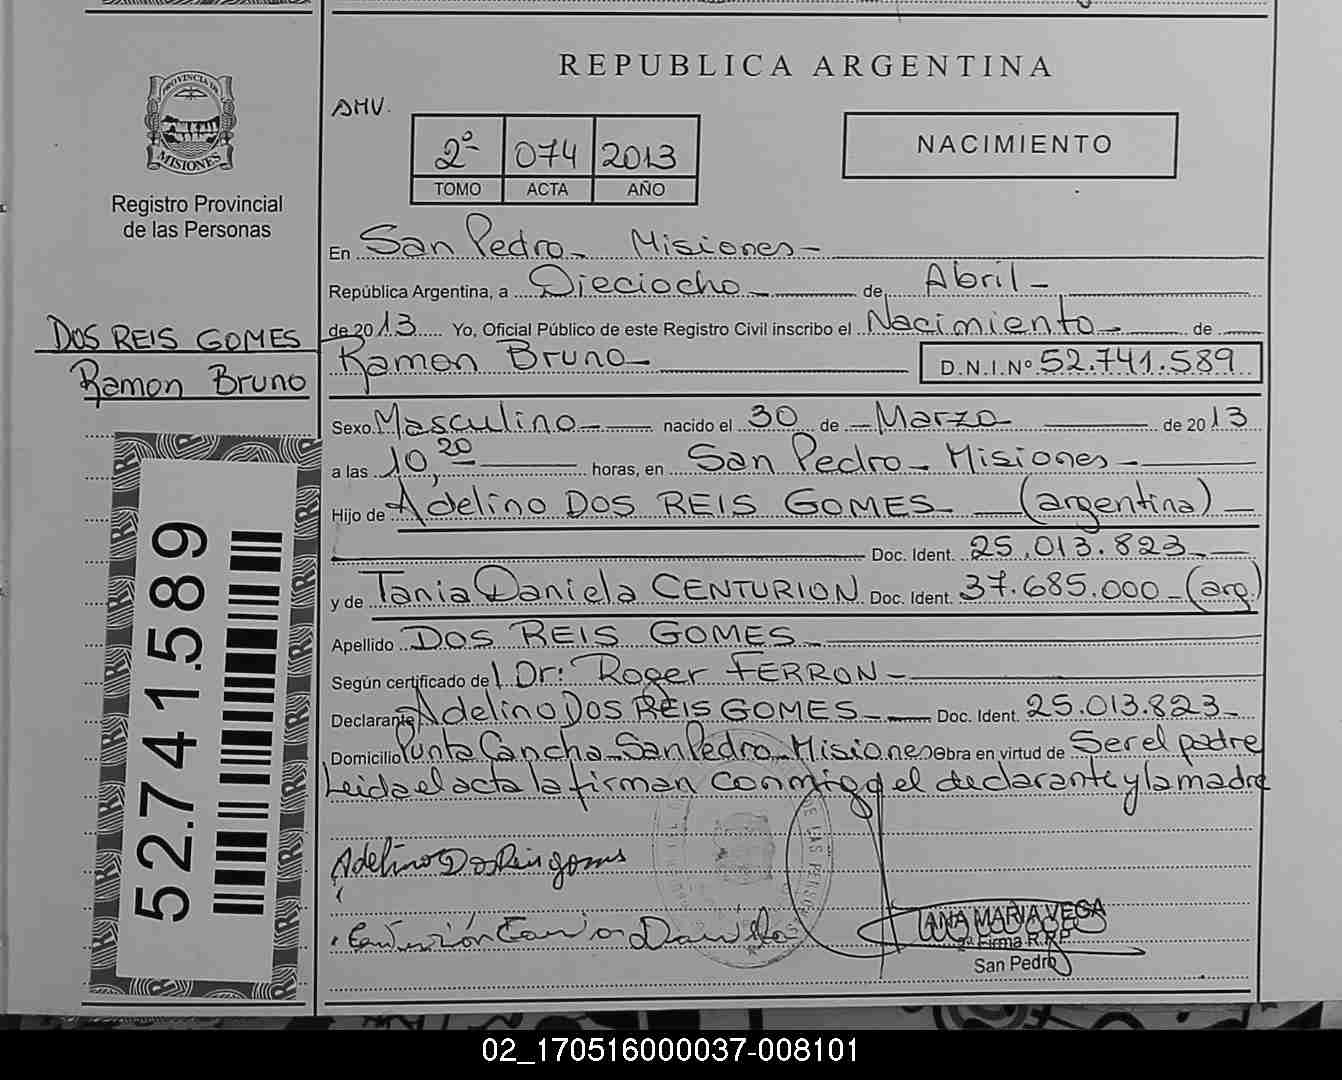 REPUBLICA ARGENTINA
PROVINCIA DE
MISIONES
Registro Provincial
de las Personas
AMV.
2º 074 2013
TOMO ACTA AÑO
NACIMIENTO
En San Pedro - Misiones -
República Argentina, a Dieciocho de Abril -
de 2013 Yo, Oficial Público de este Registro Civil inscribo el Nacimiento - de
Ramon Bruno - D.N.I.Nº 52.741.589
DOS REIS GOMES
Ramon Bruno
Sexo Masculino - nacido el 30 de - Marzo de 2013
a las 10,20 horas, en San Pedro - Misiones -
Hijo de Adelino DOS REIS GOMES - (argentina) -
Doc. Ident. 25.013.823 -
y de Tania Daniela CENTURION Doc. Ident. 37.685.000 - (arg.)
Apellido DOS REIS GOMES -
Según certificado del Dr: Roger FERRON -
Declarante Adelino DOS REIS GOMES - Doc. Ident. 25.013.823 -
Domicilio Punta Cancha - San Pedro - Misiones Obra en virtud de Ser el padre
Leida el acta la firman conmigo el declarante y la madre
52.741.589
Adelino Dos Reis gomes
Centurión Tania Daniela
ANA MARIA VEGA
2ª Firma R.P.P.
San Pedro
02_170516000037-008101